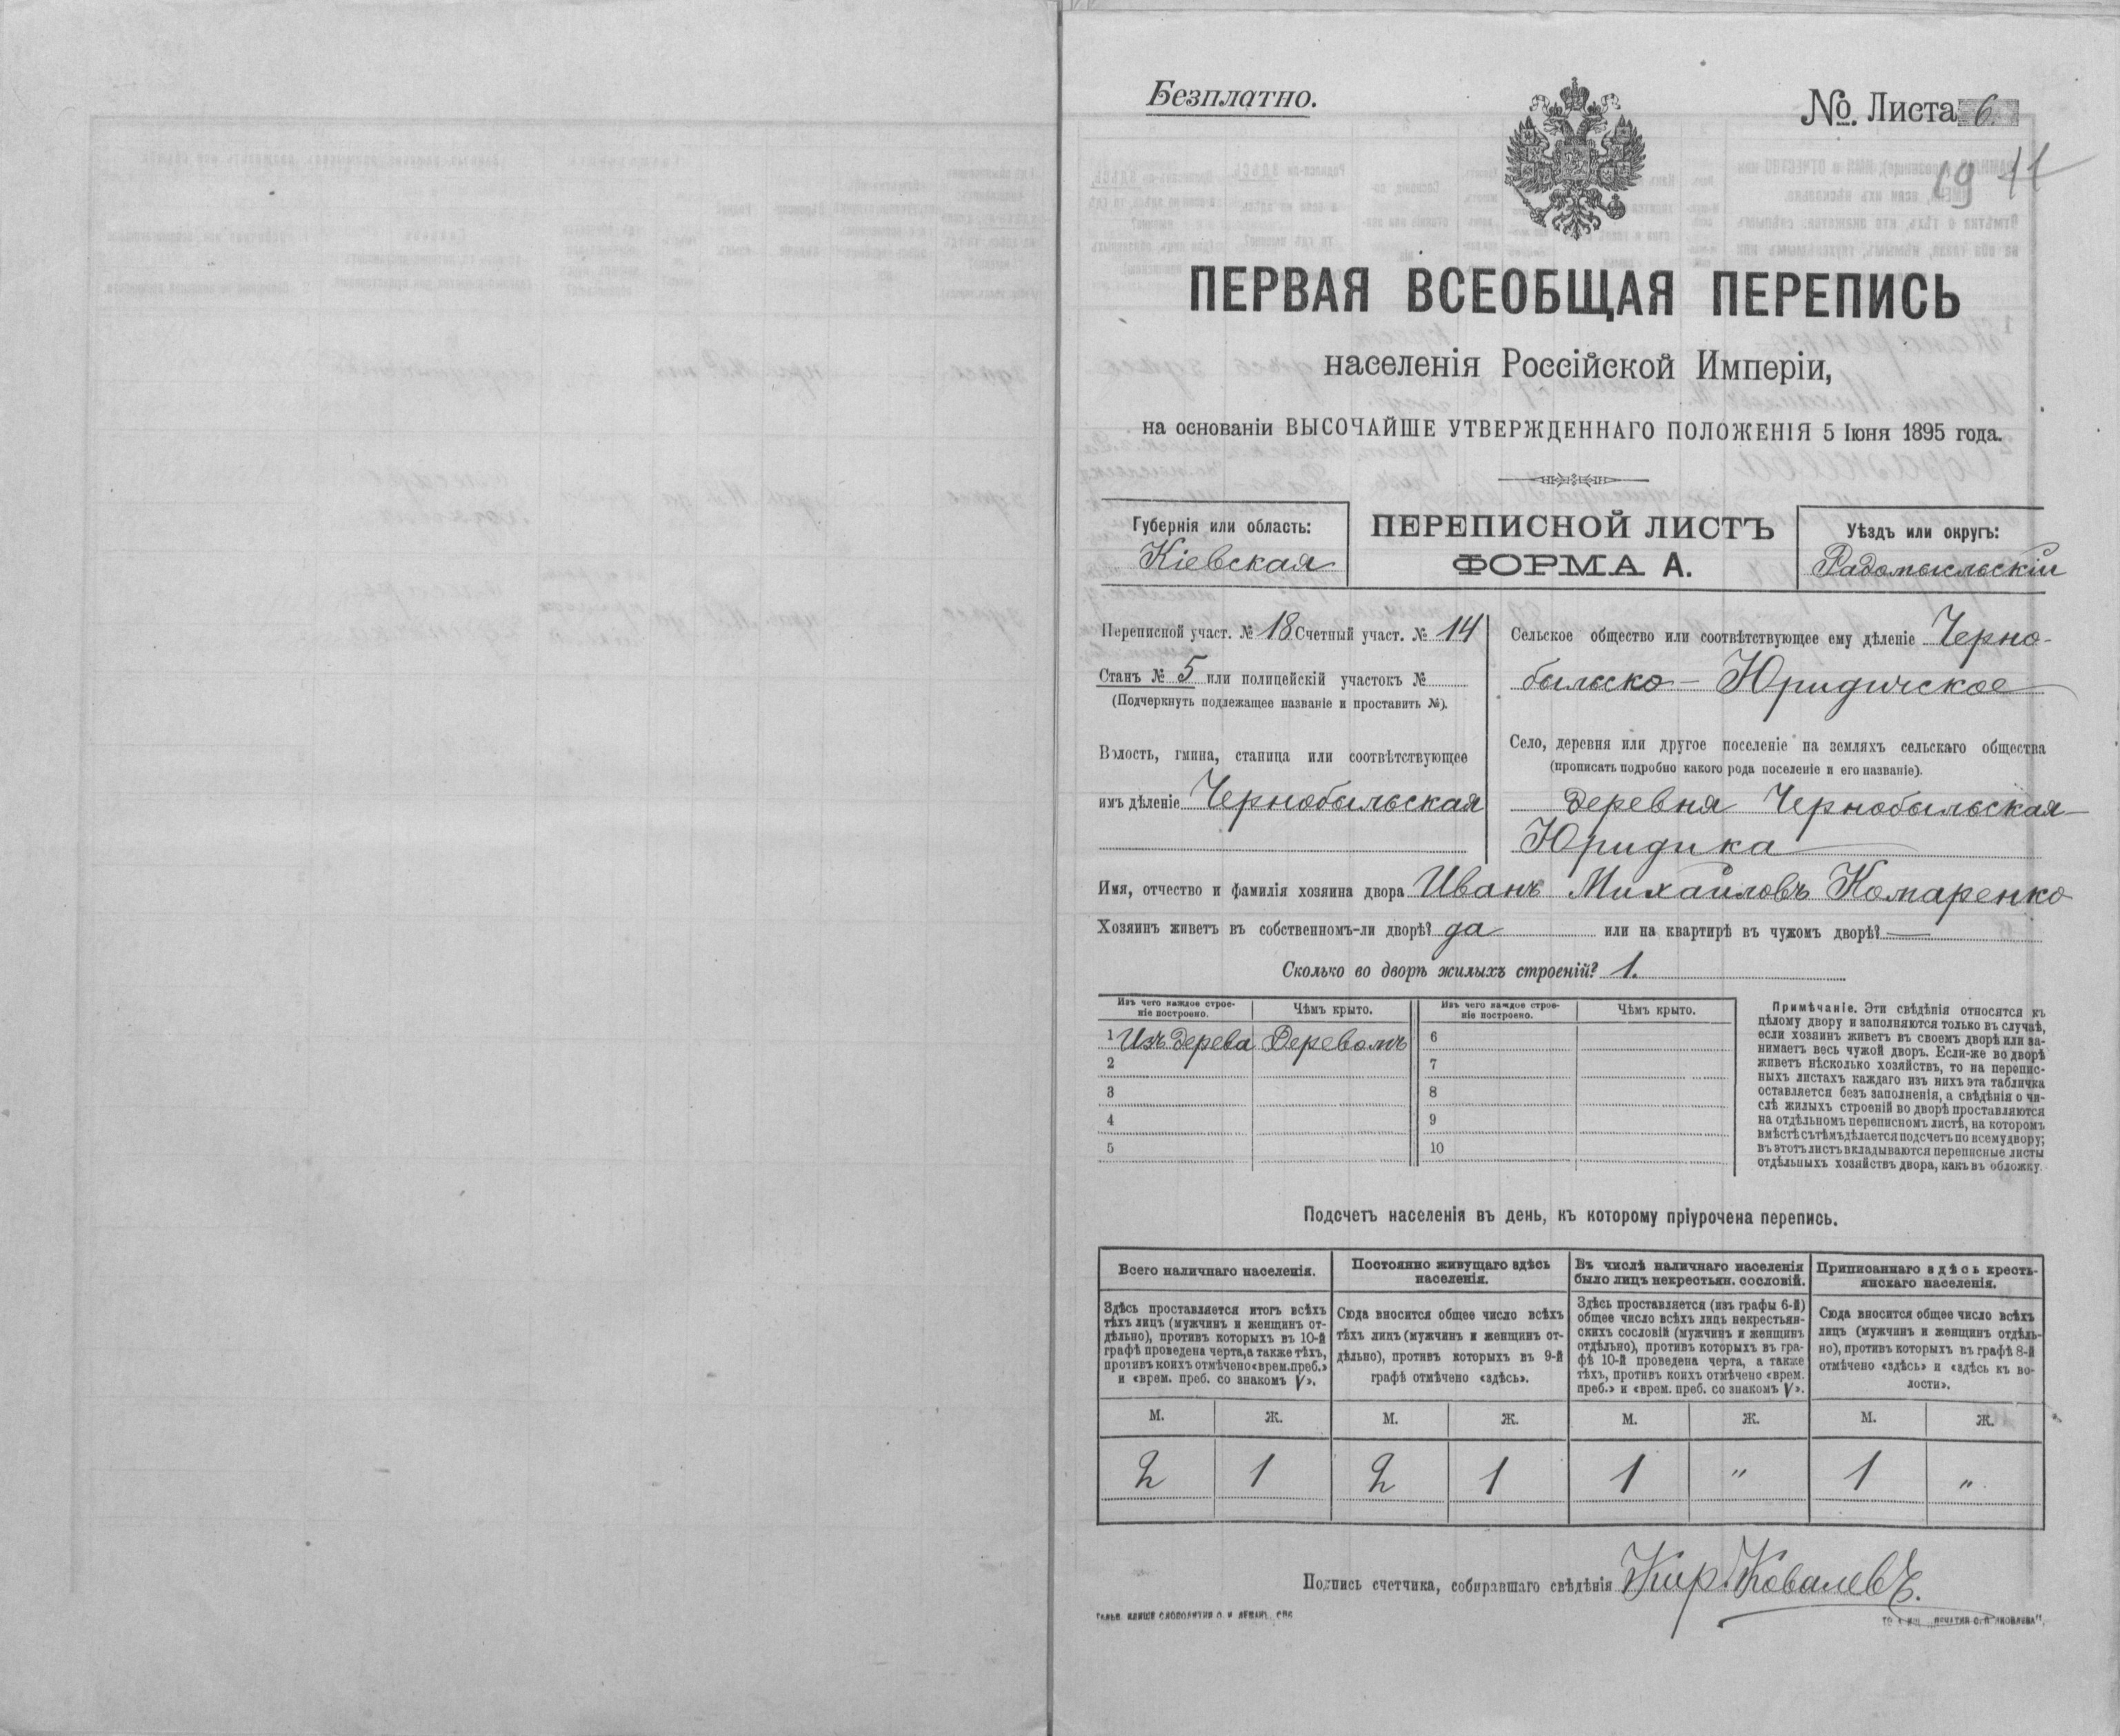 Безплатно.
№. Листа 6.
19 11
ПЕРВАЯ ВСЕОБЩАЯ ПЕРЕПИСЬ
населенія Россійской Имперіи,
на основаніи ВЫСОЧАЙШЕ УТВЕРЖДЕННАГО ПОЛОЖЕНІЯ 5 Іюня 1895 года.
Губернія или область:
Кіевская
ПЕРЕПИСНОЙ ЛИСТЪ
ФОРМА А.
Уѣздъ или округъ:
Радомысльскій
Переписной участ. № 18 Счетный участ. № 14
Станъ № 5 или полицейскій участокъ №
(Подчеркнуть подлежащее названіе и проставить №).
Волость, гмина, станица или соотвѣтствующее
имъ дѣленіе Чернобыльская
Сельское общество или соотвѣтствующее ему дѣленіе Черно-
быльско - Юридическое
Село, деревня или другое поселеніе на земляхъ сельскаго общества
(прописать подробно какого рода поселеніе и его названіе).
деревня Чернобыльская
Юридика
Имя, отчество и фамилія хозяина двора Иванъ Михайловъ Комаренко
Хозяинъ живетъ въ собственномъ-ли дворѣ? да или на квартирѣ въ чужомъ дворѣ? —
Сколько во дворѣ жилыхъ строеній? 1.
Изъ чего каждое строе-
ніе построено.
Чѣмъ крыто.
Изъ чего каждое строе-
ніе построено.
Чѣмъ крыто.
1 Изъ дерева Деревомъ 6
2 7
3 8
4 9
5 10
Примѣчаніе. Эти свѣдѣнія относятся къ
цѣлому двору и заполняются только въ случаѣ,
если хозяинъ живетъ въ своемъ дворѣ или за-
нимаетъ весь чужой дворъ. Если-же во дворѣ
живетъ нѣсколько хозяйствъ, то на перепис-
ныхъ листахъ каждаго изъ нихъ эта табличка
оставляется безъ заполненія, а свѣдѣнія о чи-
слѣ жилыхъ строеній во дворѣ проставляются
на отдѣльномъ переписномъ листѣ, на которомъ
вмѣстѣ съ тѣмъ дѣлается подсчетъ по всему двору;
въ этотъ листъ вкладываются переписные листы
отдѣльныхъ хозяйствъ двора, какъ въ обложку.
Подсчетъ населенія въ день, къ которому пріурочена перепись.
Всего наличнаго населенія.
Здѣсь проставляется итогъ всѣхъ
тѣхъ лицъ (мужчинъ и женщинъ от-
дѣльно), противъ которыхъ въ 10-й
графѣ проведена черта, а также тѣхъ,
противъ коихъ отмѣчено «врем. преб.»
и «врем. преб. со знакомъ V».
Постоянно живущаго здѣсь
населенія.
Сюда вносится общее число всѣхъ
тѣхъ лицъ (мужчинъ и женщинъ от-
дѣльно), противъ которыхъ въ 9-й
графѣ отмѣчено «здѣсь».
Въ числѣ наличнаго населенія
было лицъ некрестьян. сословій.
Здѣсь проставляется (изъ графы 6-й)
общее число всѣхъ лицъ некрестьян-
скихъ сословій (мужчинъ и женщинъ
отдѣльно), противъ которыхъ въ гра-
фѣ 10-й проведена черта, а также
тѣхъ, противъ коихъ отмѣчено «врем.
преб.» и «врем. преб. со знакомъ V».
Приписаннаго здѣсь кресть-
янскаго населенія.
Сюда вносится общее число всѣхъ
лицъ (мужчинъ и женщинъ отдѣль-
но), противъ которыхъ въ графѣ 8-й
отмѣчено «здѣсь» и «здѣсь къ во-
лости».
М. Ж. М. Ж. М. Ж. М. Ж.
2 1 2 1 1 " 1 "
Подпись счетчика, собиравшаго свѣдѣнія Кир. Ковалевъ.